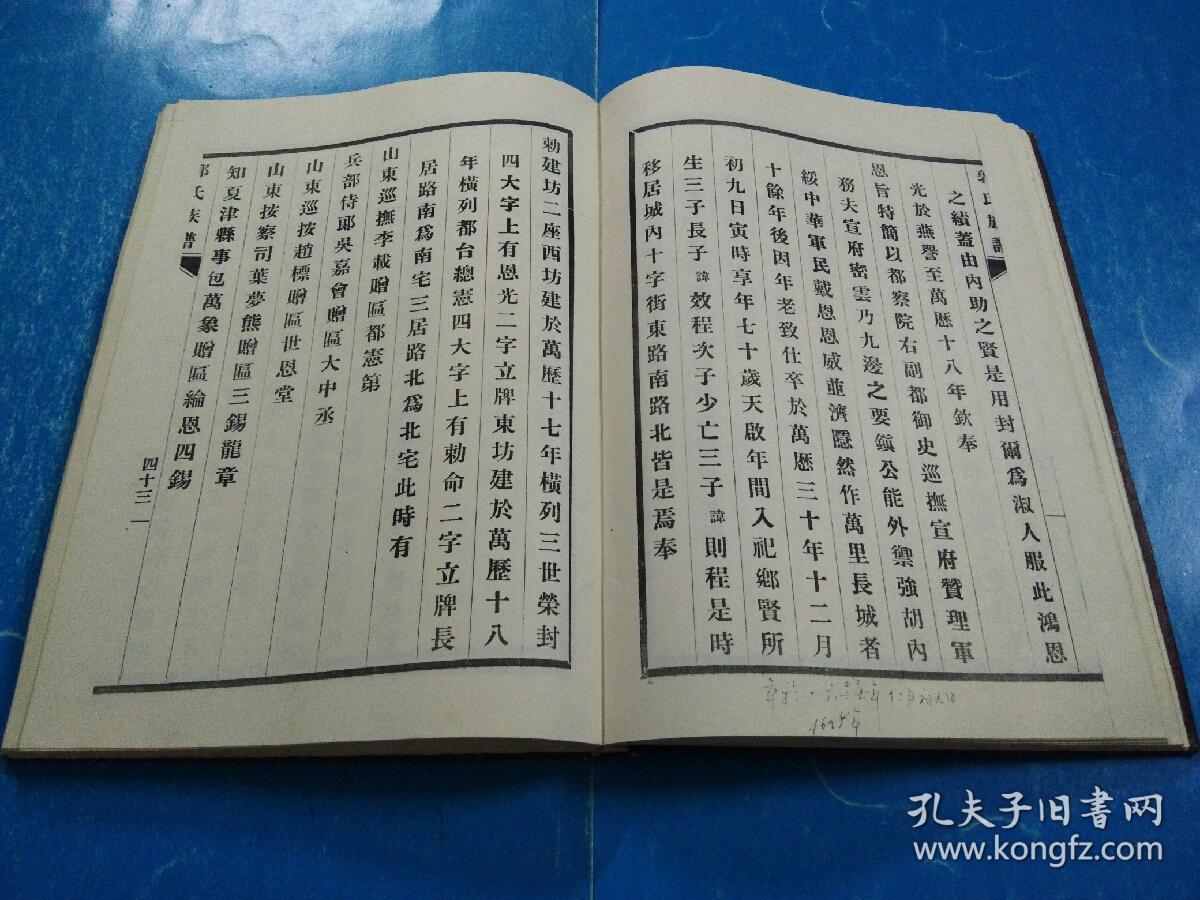 氏族譜
之績蓋由內助之賢是用封爾爲淑人服此鴻恩
光於燕譽至萬歷十八年欽奉
恩旨特簡以都察院右副都御史巡撫宣府贊理軍
務夫宣府密雲乃九邊之要鎮公能外禦強胡內
綏中華軍民戴恩恩威並濟隱然作萬里長城者
十餘年後因年老致仕卒於萬歷三十年十二月
初九日寅時享年七十歲天啟年間入祀鄉賢所
生三子長子諱效程次子少亡三子諱則程是時
移居城內十字街東路南路北皆是焉奉
勅建坊二座西坊建於萬歷十七年橫列三世榮封
四大字上有恩光二字立牌東坊建於萬歷十八
年橫列都台總憲四大字上有勅命二字立牌長
居路南爲南宅三居路北爲北宅此時有
山東巡撫李載贈區都憲第
兵部侍郞吳嘉會贈區大中丞
山東巡按趙標贈區世恩堂
山東按察司葉夢熊贈區三錫龍章
知夏津縣事包萬象贈區綸恩四錫
氏族譜
四十三
年十二月初九日
1625年
孔夫子旧书网
www.kongfz.com